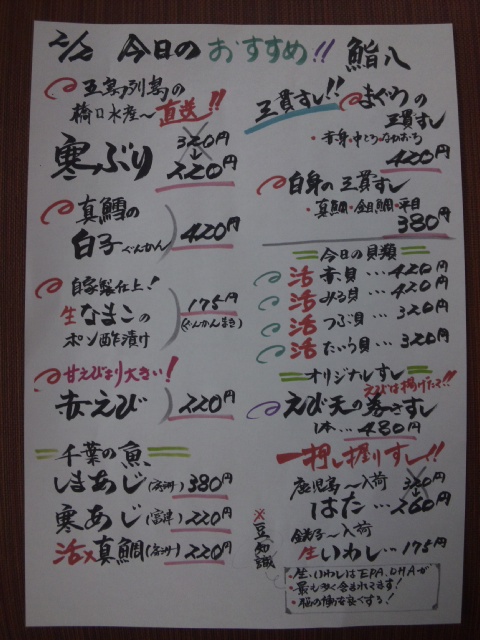 2/2 今日のおすすめ!! 鮨八
五島列島の
橋口水産〜直送!!
寒ぶり 320円
220円
真鱈の
白子ぐんかん 420円
自家製仕上!
生なまこの
ポン酢漬け
175円
(ぐんかんまき)
甘えびより大きい!
赤えび 220円
千葉の魚
しまあじ 380円
寒あじ(富津) 220円
活〆真鯛 220円
三貫すし!! まぐろの
三貫すし
・赤身・中とろ・なかおち
420円
白身の三貫すし
・真鯛・金目鯛・平目
380円
今日の貝類
活 赤貝…420円
活 みる貝…420円
活 つぶ貝…320円
活 たいら貝…320円
オリジナルすし
えびは揚げたて!!
えび天の巻きすし
1本…480円
一押し握りすし!!
鹿児島〜入荷 320円
はた…260円
銚子〜入荷
生いわし…175円
※豆知識
・生いわしはEPA、DHAが
最も多く含まれてます!
・脳の働きを良くする!